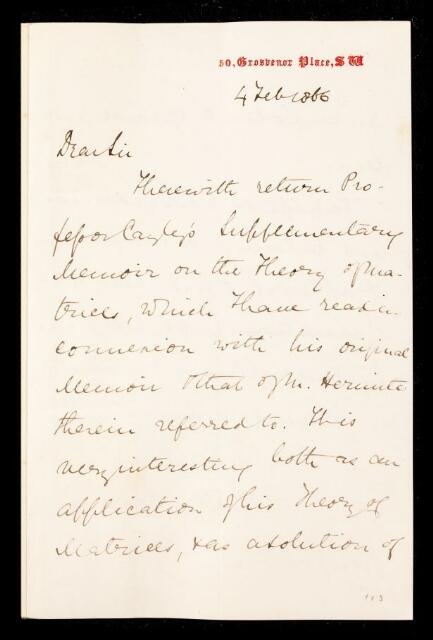 50, Grosvenor Place, S W
4 Feb 1866
Dear Sir
I herewith return Pro-
fessor Cayley's Supplementary
Memoir on the Theory of Ma-
trices, which I have read in
connexion with his original
Memoir & that of M. Hermite
therein referred to. It is
very interesting both as an
application of his Theory of
Matrices, & as a solution of
113